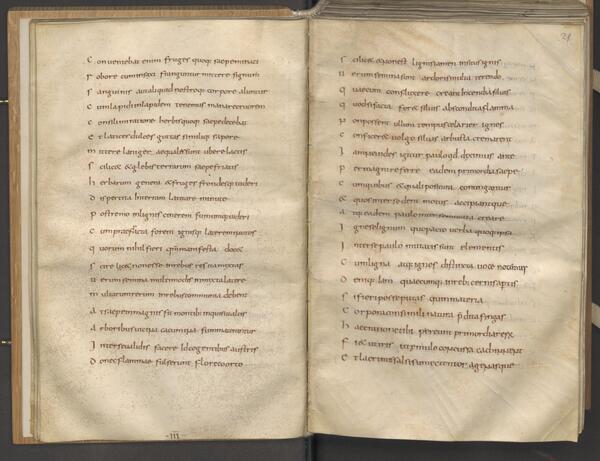 Conveniebat enim fruges quoq; saepe minaci
robore cum in saxi franguntur mittere signum
sanguinis aut aliquid nostro corpore aluntur
cum lapidi in lapidem terimus manare cruorem
consimili ratione herbis quoq; saepe decebat
et latices dulces guttas similiq; sapore
mittere lanigerae quales sunt ubere lactis
scilicet et glebis terrarum saepe friatis
herbarum genera et fruges frondesq; videri
dispertita inter terram latitare minute
postremo in lignis cinerem fumumq; videri
cum praefracta forent ignisq; latere minutos
quorum nihil fieri quoniam manifesta docet
scire licet non esse in rebus res ita mixtas
verum semina multimodis inmixta latere
multarum rerum in rebus communia debent
At saepe magnis fit montibus inquis ut altis
arboribus vicina cacumina summa terantur
Inter se validis facere id cogentibus austris
donec flammae fulserunt flore coorto
24
scilicet et non est lignis tamen insitus ignis
verum semina sunt ardoris multa terendo
quae cum confluxere creant incendia silvis
quod si facta foret silvis abscondita flamma
non possent ullum tempus celarier ignes
conficerent volgo silvas arbusta cremarent
Iamne vides igitur paulo quod diximus ante
permagni referre eadem primordia saepe
cum quibus et quali positura contineantur
et quos inter se dent motus accipiantque
atq; eadem paulo inter se mutata creare
Ignes e lignum quo pacto verba quoq; ipsa
Inter se paulo mutatis sunt elementis
Cum ligna atq; ignes distincta voce notemus
Deniq; iam quaecumq; in rebus cernis apertis
Si fieri non posse putas quin materiai
Corpora consimili natura praedita fingas
hac ratione tibi pereunt primordia rerum
Fiet uti risu tremulo concussa cachinnent
Et lacrimis salsis umectent ora genasque
·III·